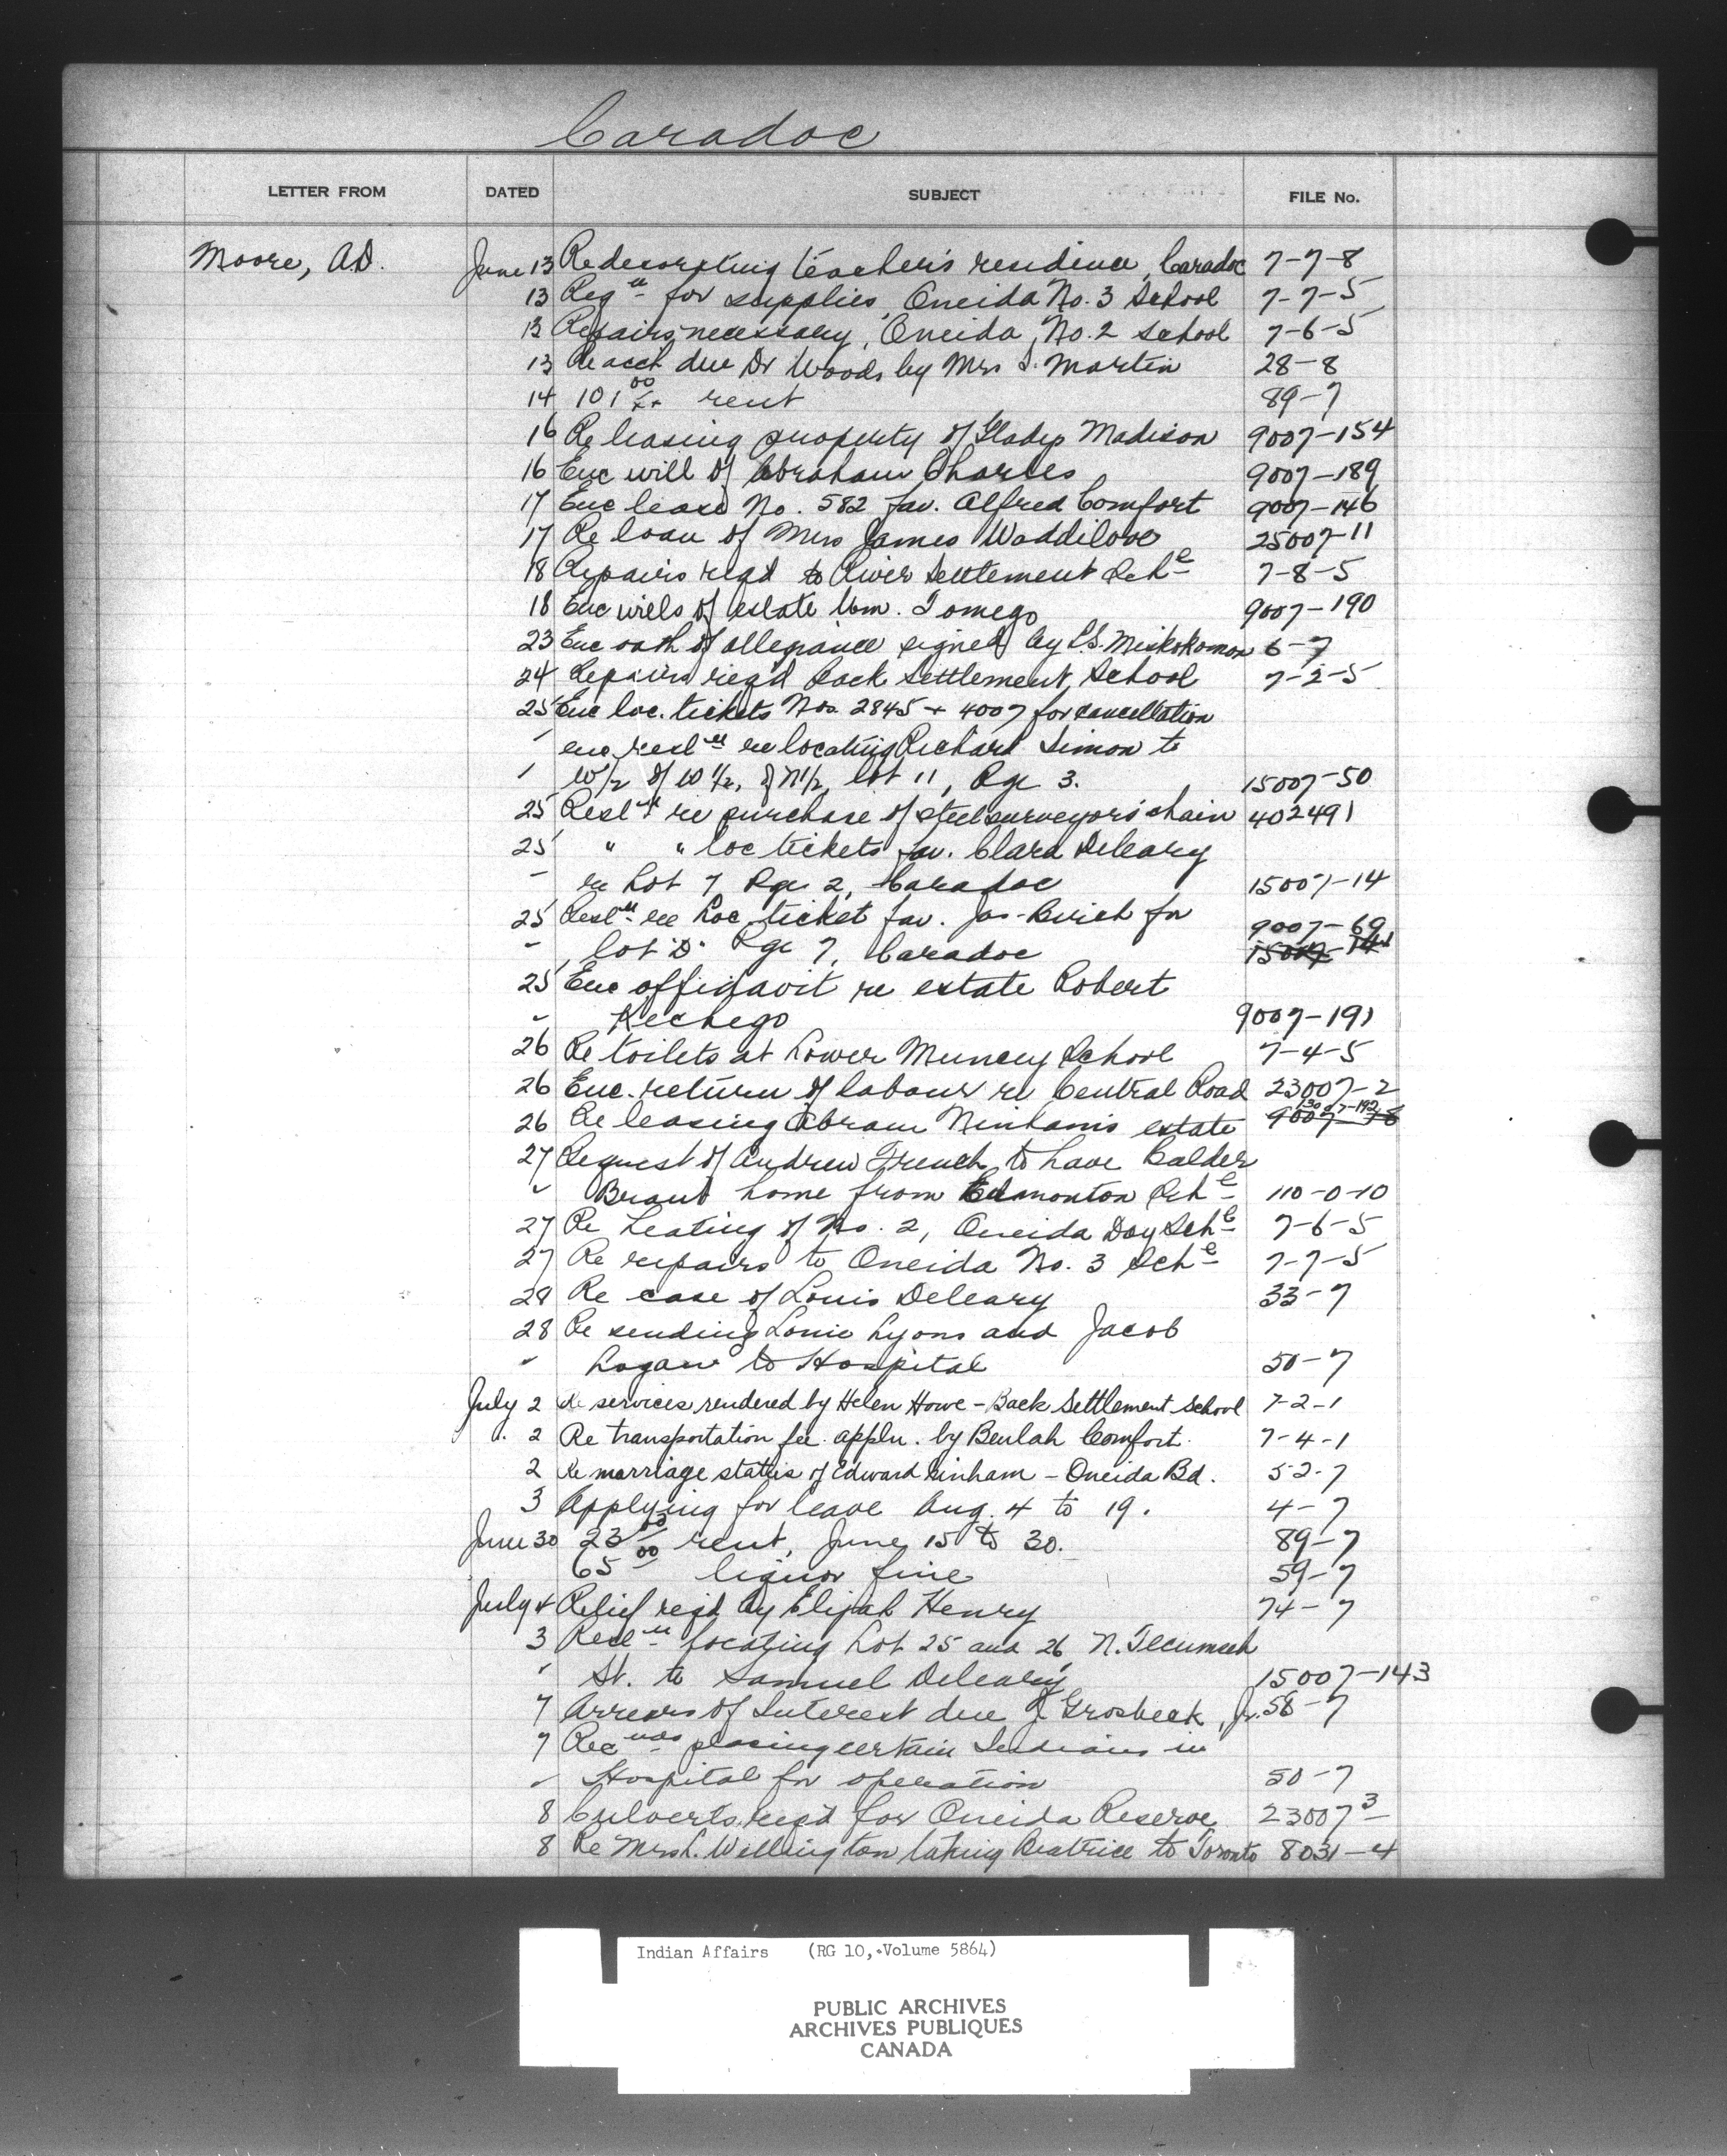 Caradoc
LETTER FROM DATED SUBJECT FILE No.
Moore, A.D. June 13 Redecorating teacher's residence, Caradoc 7-7-8
13 Reqn for supplies, Oneida No. 3 School 7-7-5
13 Repairs necessary, Oneida, No. 2 school 7-6-5
13 Re acct due Dr Woods by Mrs S. Martin 28-8
14 101 00/xx rent 89-7
16 Re leasing property of Gladys Madison 9007-154
16 Enc will of Abraham Charles 9007-189
17 Enc lease No. 582 fav. Alfred Comfort 9007-146
17 Re loan of Mrs James Waddilove 25007-11
18 Repairs reqd to River Settlement Schl 7-8-5
18 Enc wills of estate Wm. Tomego 9007-190
23 Enc oath of allegiance signed by Miskokomon 6-7
24 Repairs req'd Back Settlement, School 7-2-5
25 Enc loc. tickets Nos. 2845 + 4007 for cancellation
" enc resln re locating Richard Simon to
" W/2 of W 1/2, of N1/2, lot 11, Rge 3. 15007-50
25 Resln re purchase of steel surveyors' chain 402491
25 " " loc tickets fav. Clara Deleary
" re Lot 7 Rge 2, Caradoc 15007-14
25 Resln re Loc. ticket fav. Jas. for 9007-69
" lot D. Rge 7, Caradoc 15007-141
25 Enc affidavit re estate Robert
" Kechego 9007-191
26 Re toilets at Lower Muncey School 7-4-5
26 Enc. return of labour re Central Road 23007-2
26 Re leasing Abram Ninham's estate 9007
27 Request of Andrew French to have Calder
" Brant home from Edmonton Schl 110-0-10
27 Re heating of No. 2, Oneida Day Schl 7-6-5
27 Re repairs to Oneida No. 3 Schl 7-7-5
28 Re case of Louis Deleary 33-7
28 Re sending Louie Lyons and Jacob
" Logan to Hospital 50-7
July 2 Re services rendered by Helen Howe - Back Settlement School 7-2-1
2 Re transportation fee. appln. by Beulah Comfort. 7-4-1
2 Re marriage status of Edward Ninham - Oneida Bd. 52-7
3 Applying for leave Aug. 4 to 19. 4-7
June 30 23 00 rent, June 15 to 30. 89-7
65 00 liquor fine 59-7
July 4 Relief reqd by Elijah Henry 74-7
3 Resln locating Lot 25 and 26, N. Tecumseh
" St. to Samuel Deleary 15007-143
7 Arrears of Interest due J. Grosbeck, Jr. 58-7
7 Rec placing certain Indians in
" Hospital for operation 50-7
8 Culverts req'd for Oneida Reserve 23007-3
8 Re Mrs L. Wellington taking Beatrice to Toronto 8031-4
Indian Affairs (RG 10, Volume 5864)
PUBLIC ARCHIVES
ARCHIVES PUBLIQUES
CANADA